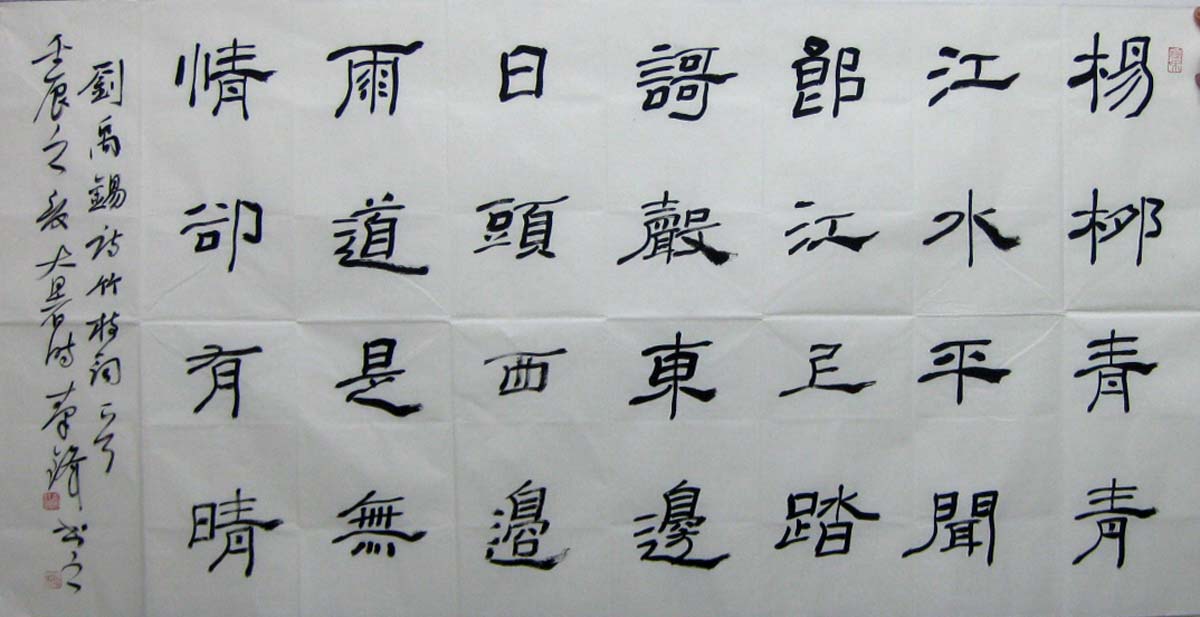 楊柳青青
江水平聞
郎江上踏
謌聲東邊
日頭西邊
雨道是無
情卻有晴
劉禹錫詩竹枝詞一首
壬辰之夏大暑時鋒書之